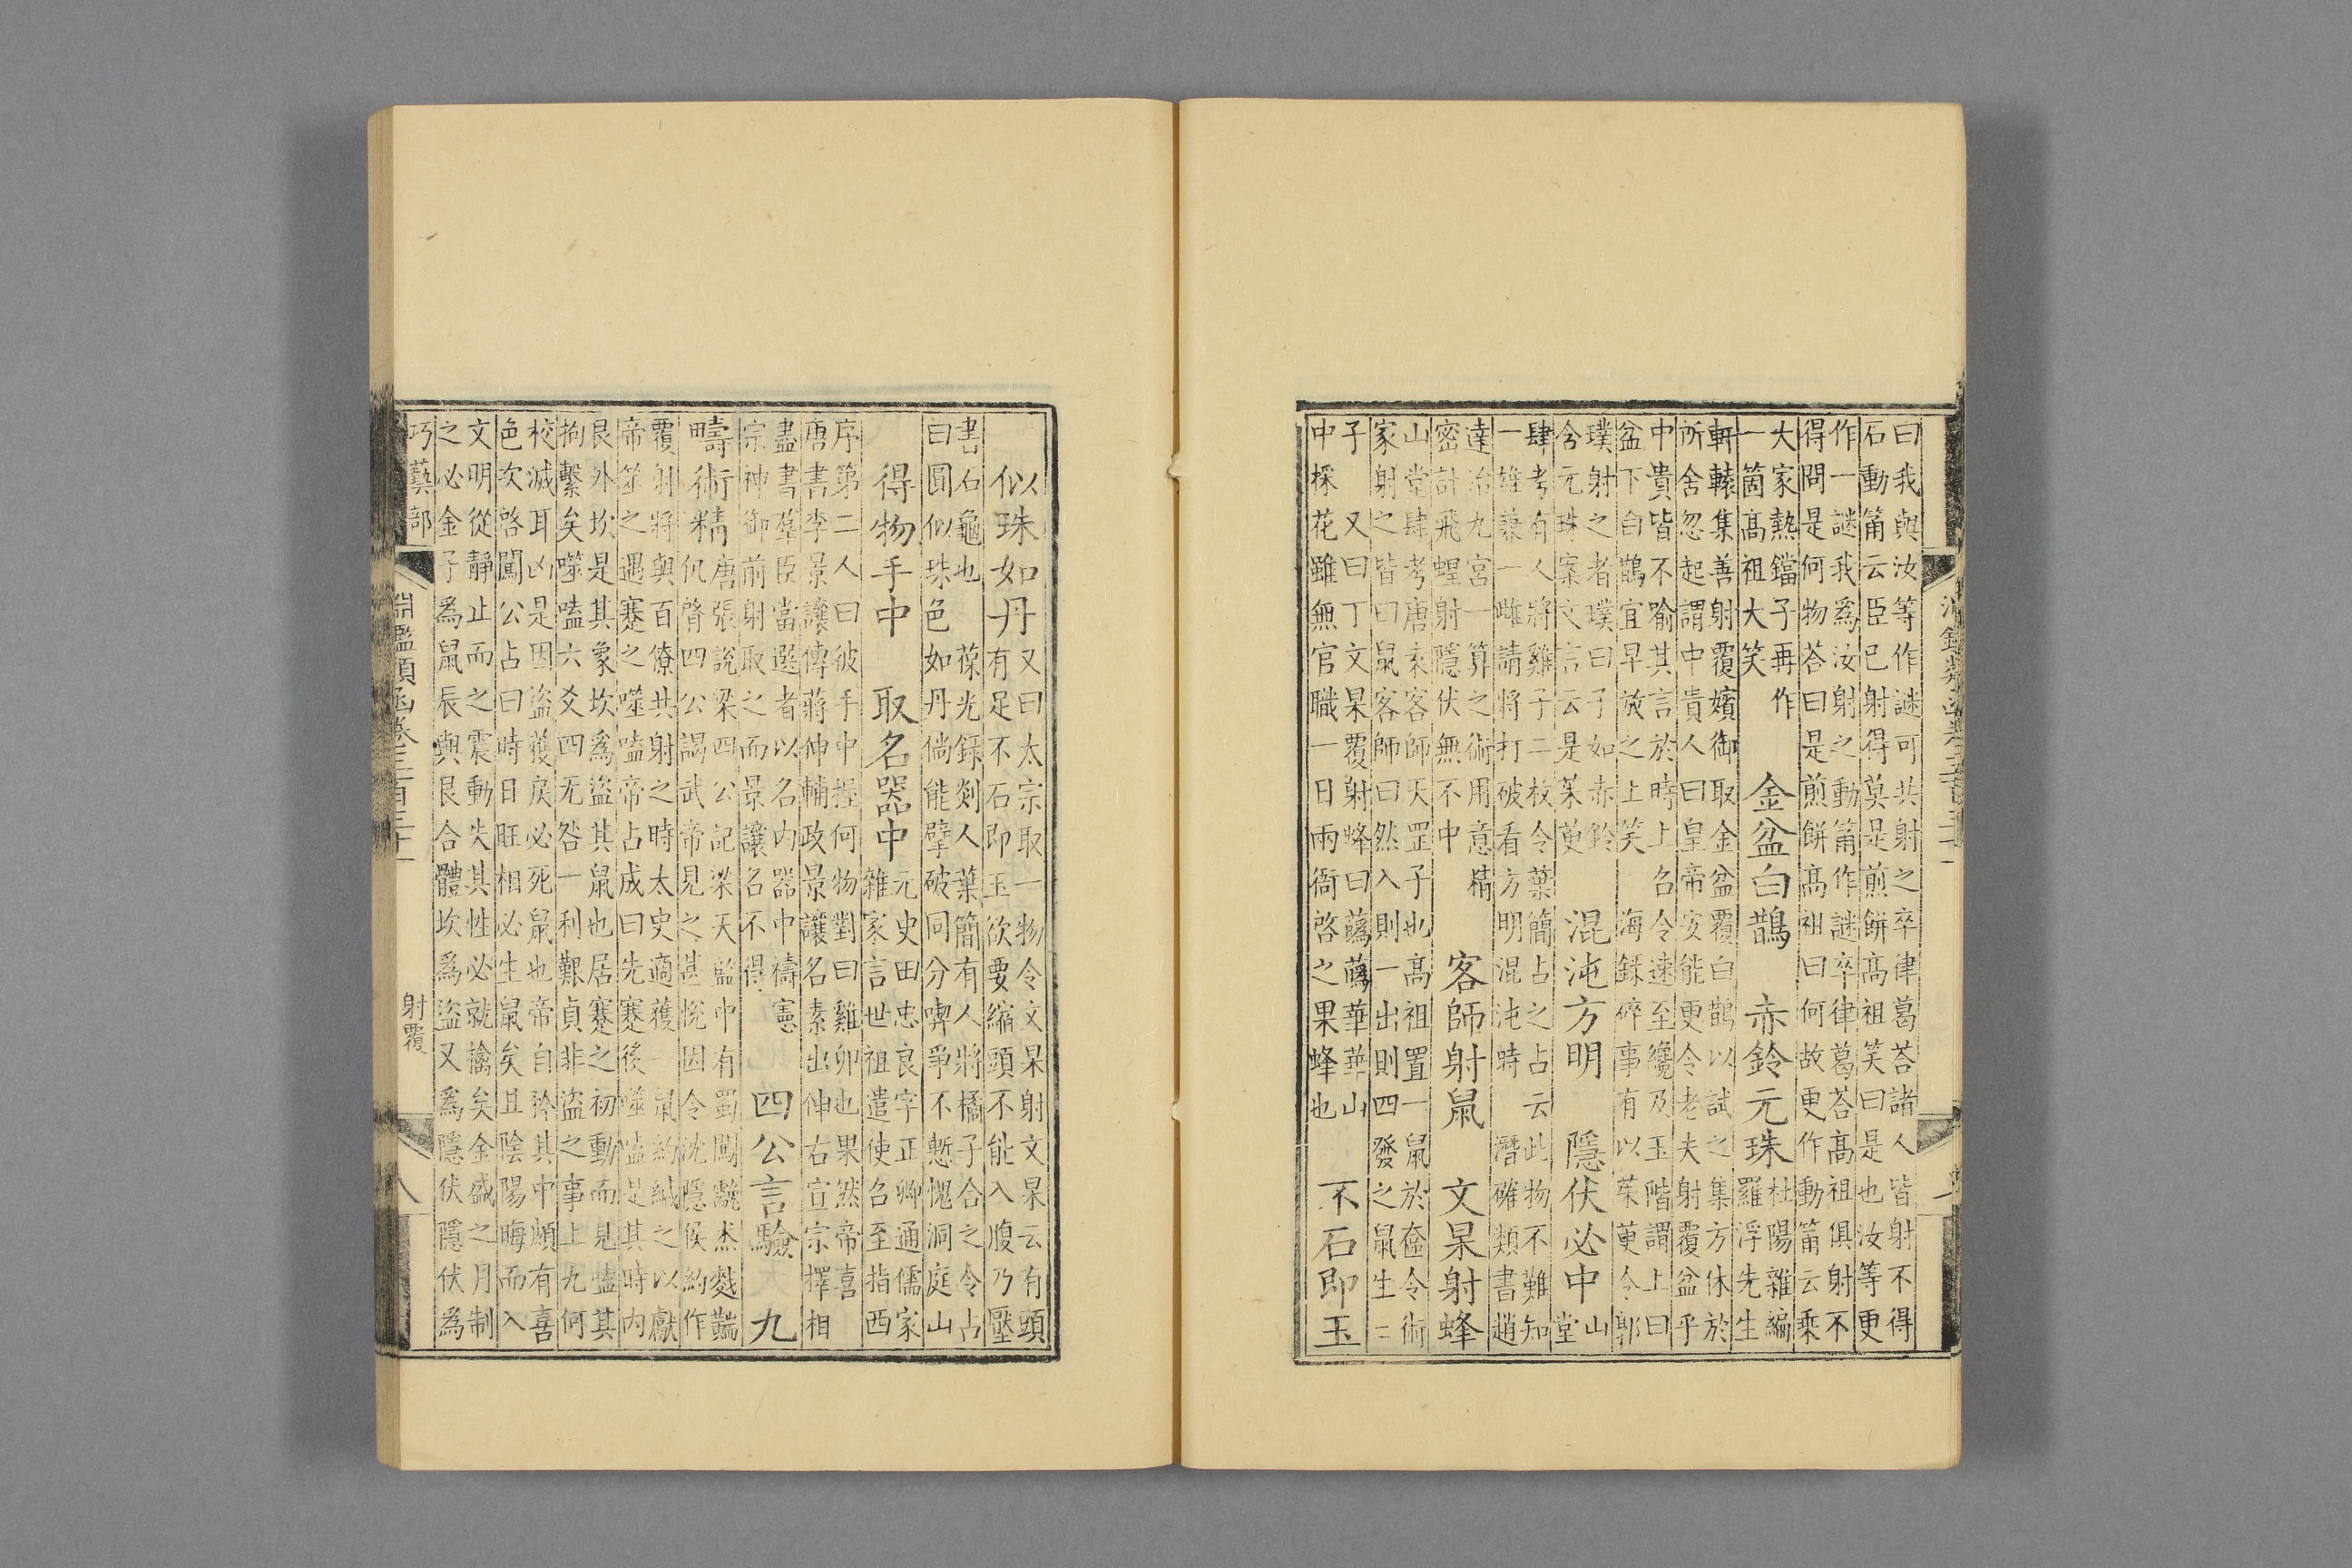 曰我與汝等作謎可共射之卒律葛荅諸人皆射不得
石動筩云臣已射得莫是煎餅高祖笑曰是也汝等更
作一謎我爲汝射之動筩作謎卒律葛荅高祖俱射不
得問是何物荅曰是煎餅高祖曰何故更作動筩云乘
大家熱鐺子再作
一箇高祖大笑
金盆白鵲 赤鈴元珠
杜陽雜編
羅浮先生
軒轅集善射覆嬪御取金盆覆白鵲以試之集方休於
所舍忽起謂中貴人曰皇帝安能更令老夫射覆盆乎
中貴皆不喻其言於時上名令速至纔及玉階謂上曰
盆下白鵲宜早放之上笑 海録碎事有以茱萸令郭
璞射之者璞曰子如赤鈴
含元珠案文言云是茱萸
混沌方明 隱伏必中
山
堂
肆考有人將雞子二枚令葉簡占之占云此物不難知
一雄兼一雌請將打破看方明混沌時 潛確類書趙
達治九宮一算之術用意精
密計飛蝗射隱伏無不中
客師射鼠 文杲射蜂
山堂肆考唐袁客師天罡子也高祖置一鼠於奩令術
家射之皆曰鼠客師曰然入則一出則四發之鼠生二
子 又曰丁文杲覆射蜂曰蘤蘤華華山
中採花雖無官職一日兩衙啓之果蜂也
不石即玉
似珠如丹
又曰太宗取一物令文杲射文杲云有頭
有足不石即玉欲要縮頭不能入腹乃壓
書石龜也 葆光録剡人葉簡有人將橘子合之令占
曰圓似珠色如丹倘能擘破同分喫爭不慙愧洞庭山
得物手中 取名器中
元史田忠良字正卿通儒家
雜家言世祖遣使召至指西
序第二人曰彼手中握何物對曰雞卵也果然帝喜
唐書李景讓傳蔣伸輔政景讓名素出伸右宣宗擇相
盡書羣臣當選者以名内器中禱憲
宗神御前射取之而景讓名不得
四公言驗 九
疇術精
唐張說梁四公記梁天監中有蜀闖杰
仉四公謁武帝見之甚悦因令沈隱侯約作
覆射將與百僚共射之時太史適獲一鼠約緘之以獻
帝筮之遇蹇之噬嗑帝占成曰先蹇後噬嗑是其時内
艮外坎是其象坎爲盜其鼠也居蹇之初動而見嗑其
拘繫矣噬嗑六爻四无咎一利艱貞非盜之事上九何
校滅耳凶是因盜獲戾必死鼠也帝自矜其中頗有喜
色次啓闖公占曰時日旺相必生鼠矣且陰陽晦而入
文明從靜止而之震動失其性必就擒矣金盛之月制
之必金子爲鼠辰與艮合體坎爲盜又爲隱伏隱伏爲
巧藝部 淵鑑類函卷三百三十一 射覆 八